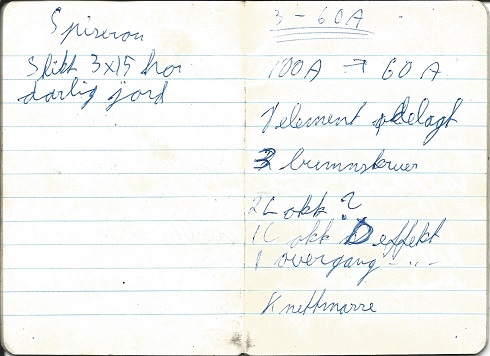 Spiserom
Slikt 3x15 har
dårlig jord
3-60A
100A → 60A
1 element ødelagt
3 bunnskruer
2 Lokk ?
1 Lokk Defekt
1 overgang -..-
Knottmarre